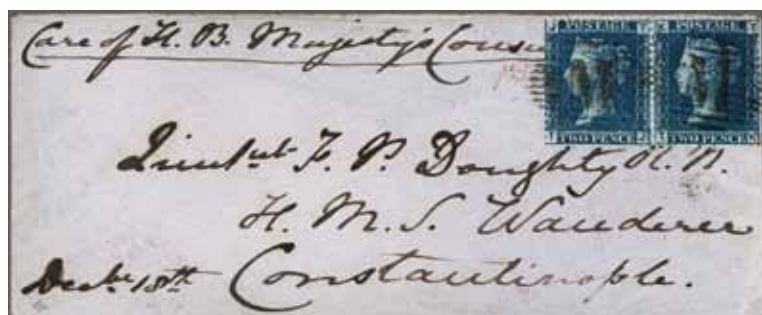 Care of H. B. Majesty's Consul
POSTAGE POSTAGE
TWO PENCE TWO PENCE
Lieutent F. P. Doughty R. N.
H. M. S. Wanderer
Constantinople.
Decbr 18th